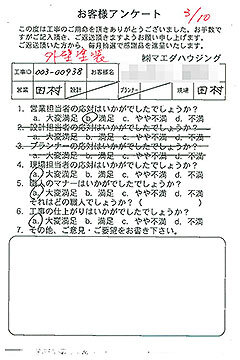 お客様アンケート 3/10
この度は工事のご用命を頂きありがとうございました。お手数で
すがご記入頂き、ご返送頂きますようお願い申し上げます。
ご返送頂いた方から、毎月抽選で感謝品を進呈いたします。
外壁塗装 ㈱マエダハウジング
工事ID 003-00938 お客様名
営業 田村 設計 プランナー 現場 田村
1. 営業担当者の応対はいかがでしたでしょうか?
a. 大変満足 b. 満足 c. やや不満 d. 不満
2. 設計担当者の応対はいかがでしたでしょうか?
a. 大変満足 b. 満足 c. やや不満 d. 不満
3. プランナーの応対はいかがでしたでしょうか?
a. 大変満足 b. 満足 c. やや不満 d. 不満
4. 現場担当者の応対はいかがでしたでしょうか?
a. 大変満足 b. 満足 c. やや不満 d. 不満
5. 職人のマナーはいかがでしたでしょうか?
a. 大変満足 b. 満足 c. やや不満 d. 不満
それはどの職人でしょうか?( )
6. 工事の仕上がりはいかがでしたでしょうか?
a. 大変満足 b. 満足 c. やや不満 d. 不満
7. その他、ご意見・ご要望をお書き下さい。